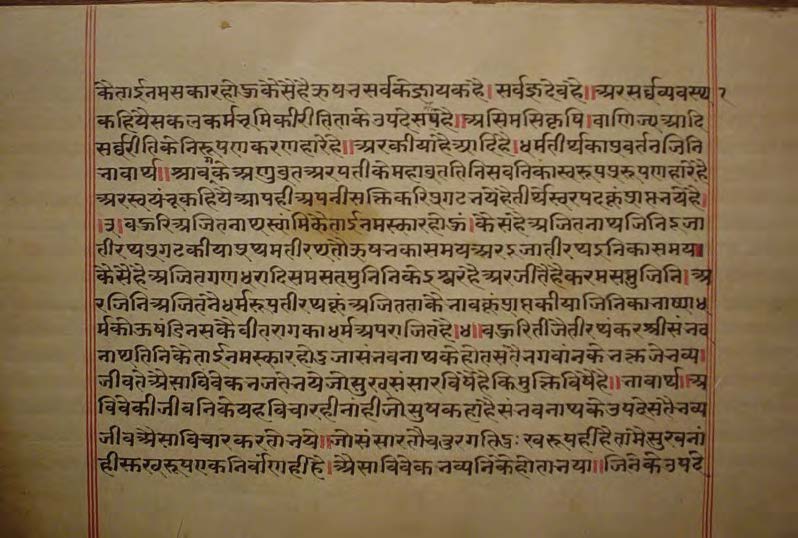 कै तांई नमसकार होऊ कैसे है ऊषन सर्व के ज्ञायक है। सर्वज्ञ देव है॥ अर सर्व व्यवस्थ १
कहियै सकल कर्मभूमि की रीति ताके उपदेसक है॥ असि मसि कृषि। वाणिज्य आदि
सर्व रीति के निरूपण करणहारे है॥ अर कीया है आदि है। धर्मतीर्थ का प्रवर्तन जिनि
भावार्थ॥ श्रावक के अणुव्रत अर यती के महाव्रत तिनि सवनि का स्वरूप प्ररूपणहारे है
अर स्वयंभू कहियै आप ही अपनी सक्ति करि प्रगट भये है तीर्थेस्वर पद कूं प्राप्त भये है
।३। बहुरि अजितनाथ स्वामि कै तांई नमस्कार होऊ। कैसे है अजितनाथ जिनि प्रजा
तीरथ प्रगट कीया प्रथम तीरथ तौ ऊषभ का समय अर प्रजा तीरथ इनि का समय॥
कैसे है अजित गणधरादि समसत मुनिनि के ईश्वर है अर जीते है करम सत्रु जिनि। अ
र जिनि अजित नै धर्मरूप तीरथ कूं अजितता कै भाव कूं प्राप्त कीया जिनि का भाष्या ध
र्म को ऊषंडि न सकै वीतराग का धर्म अपराजित है।४। बहुरि तीजे तीरथंकर श्री संभव
नाथ तिनि कै तांई नमस्कार होउ जा संभवनाथ के होत संतै भगवांन के भक्त जे भव्य।
जीव ते अैसा विवेक भजते भये जो सुख संसार विषैं है कि मुक्ति विषैं है॥ भावार्थ। अ
विवेकी जीवनि कै यह विचार ही नाही जो सुष कहां है संभवनाथ के उपदेस तै भव्य
जीव अैसा विचार करतो भये॥ जो संसार तौ चउर गति दुःखरूप ही है तामै सुख नां
ही सुखरूप एक निर्वाण ही है। अैसा विवेक भव्यनि कै होता भया॥ जिन के उपदे